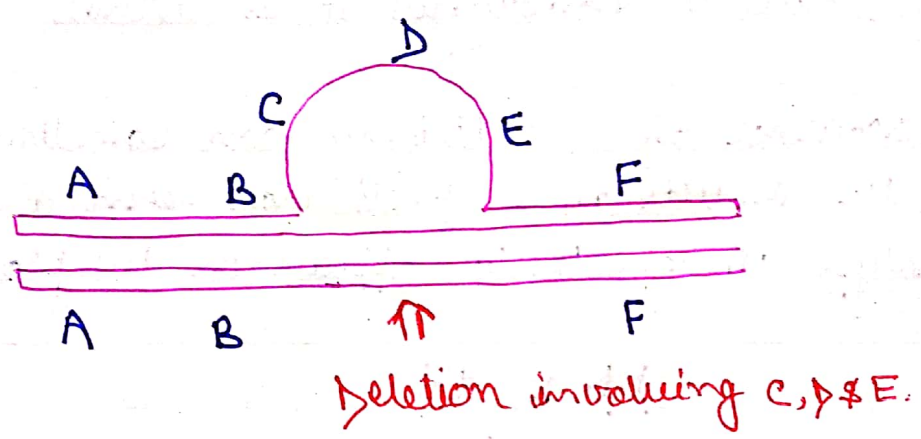 D
C E
A B F
A B F
Deletion involving C, D & E.